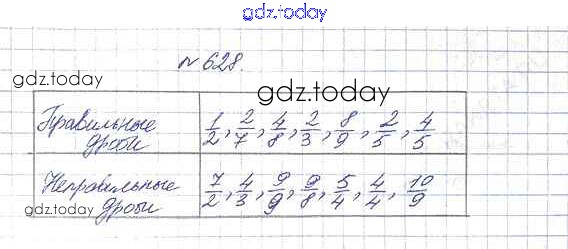 gdz.today
№ 628.
gdz.today
gdz.today
Правильные дроби 1/2, 2/7, 4/8, 2/3, 8/9, 2/5, 4/5
Неправильные дроби 7/2, 4/3, 9/9, 9/8, 5/4, 4/4, 10/9
gdz.today